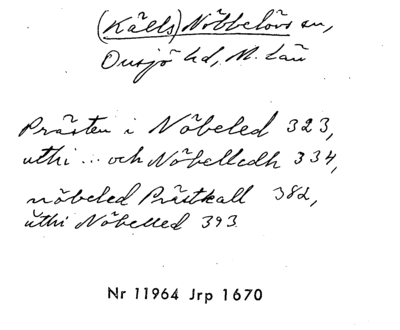 (Källs) Nöbbelövs sn,
Onsjö hd, M. län
Prästen i Nöbeled 323,
uthi ... och Nöbelledh 334,
nöbeled Prästkall 382,
uthi Nöbelled 393.
Nr 11964 Jrp 1670